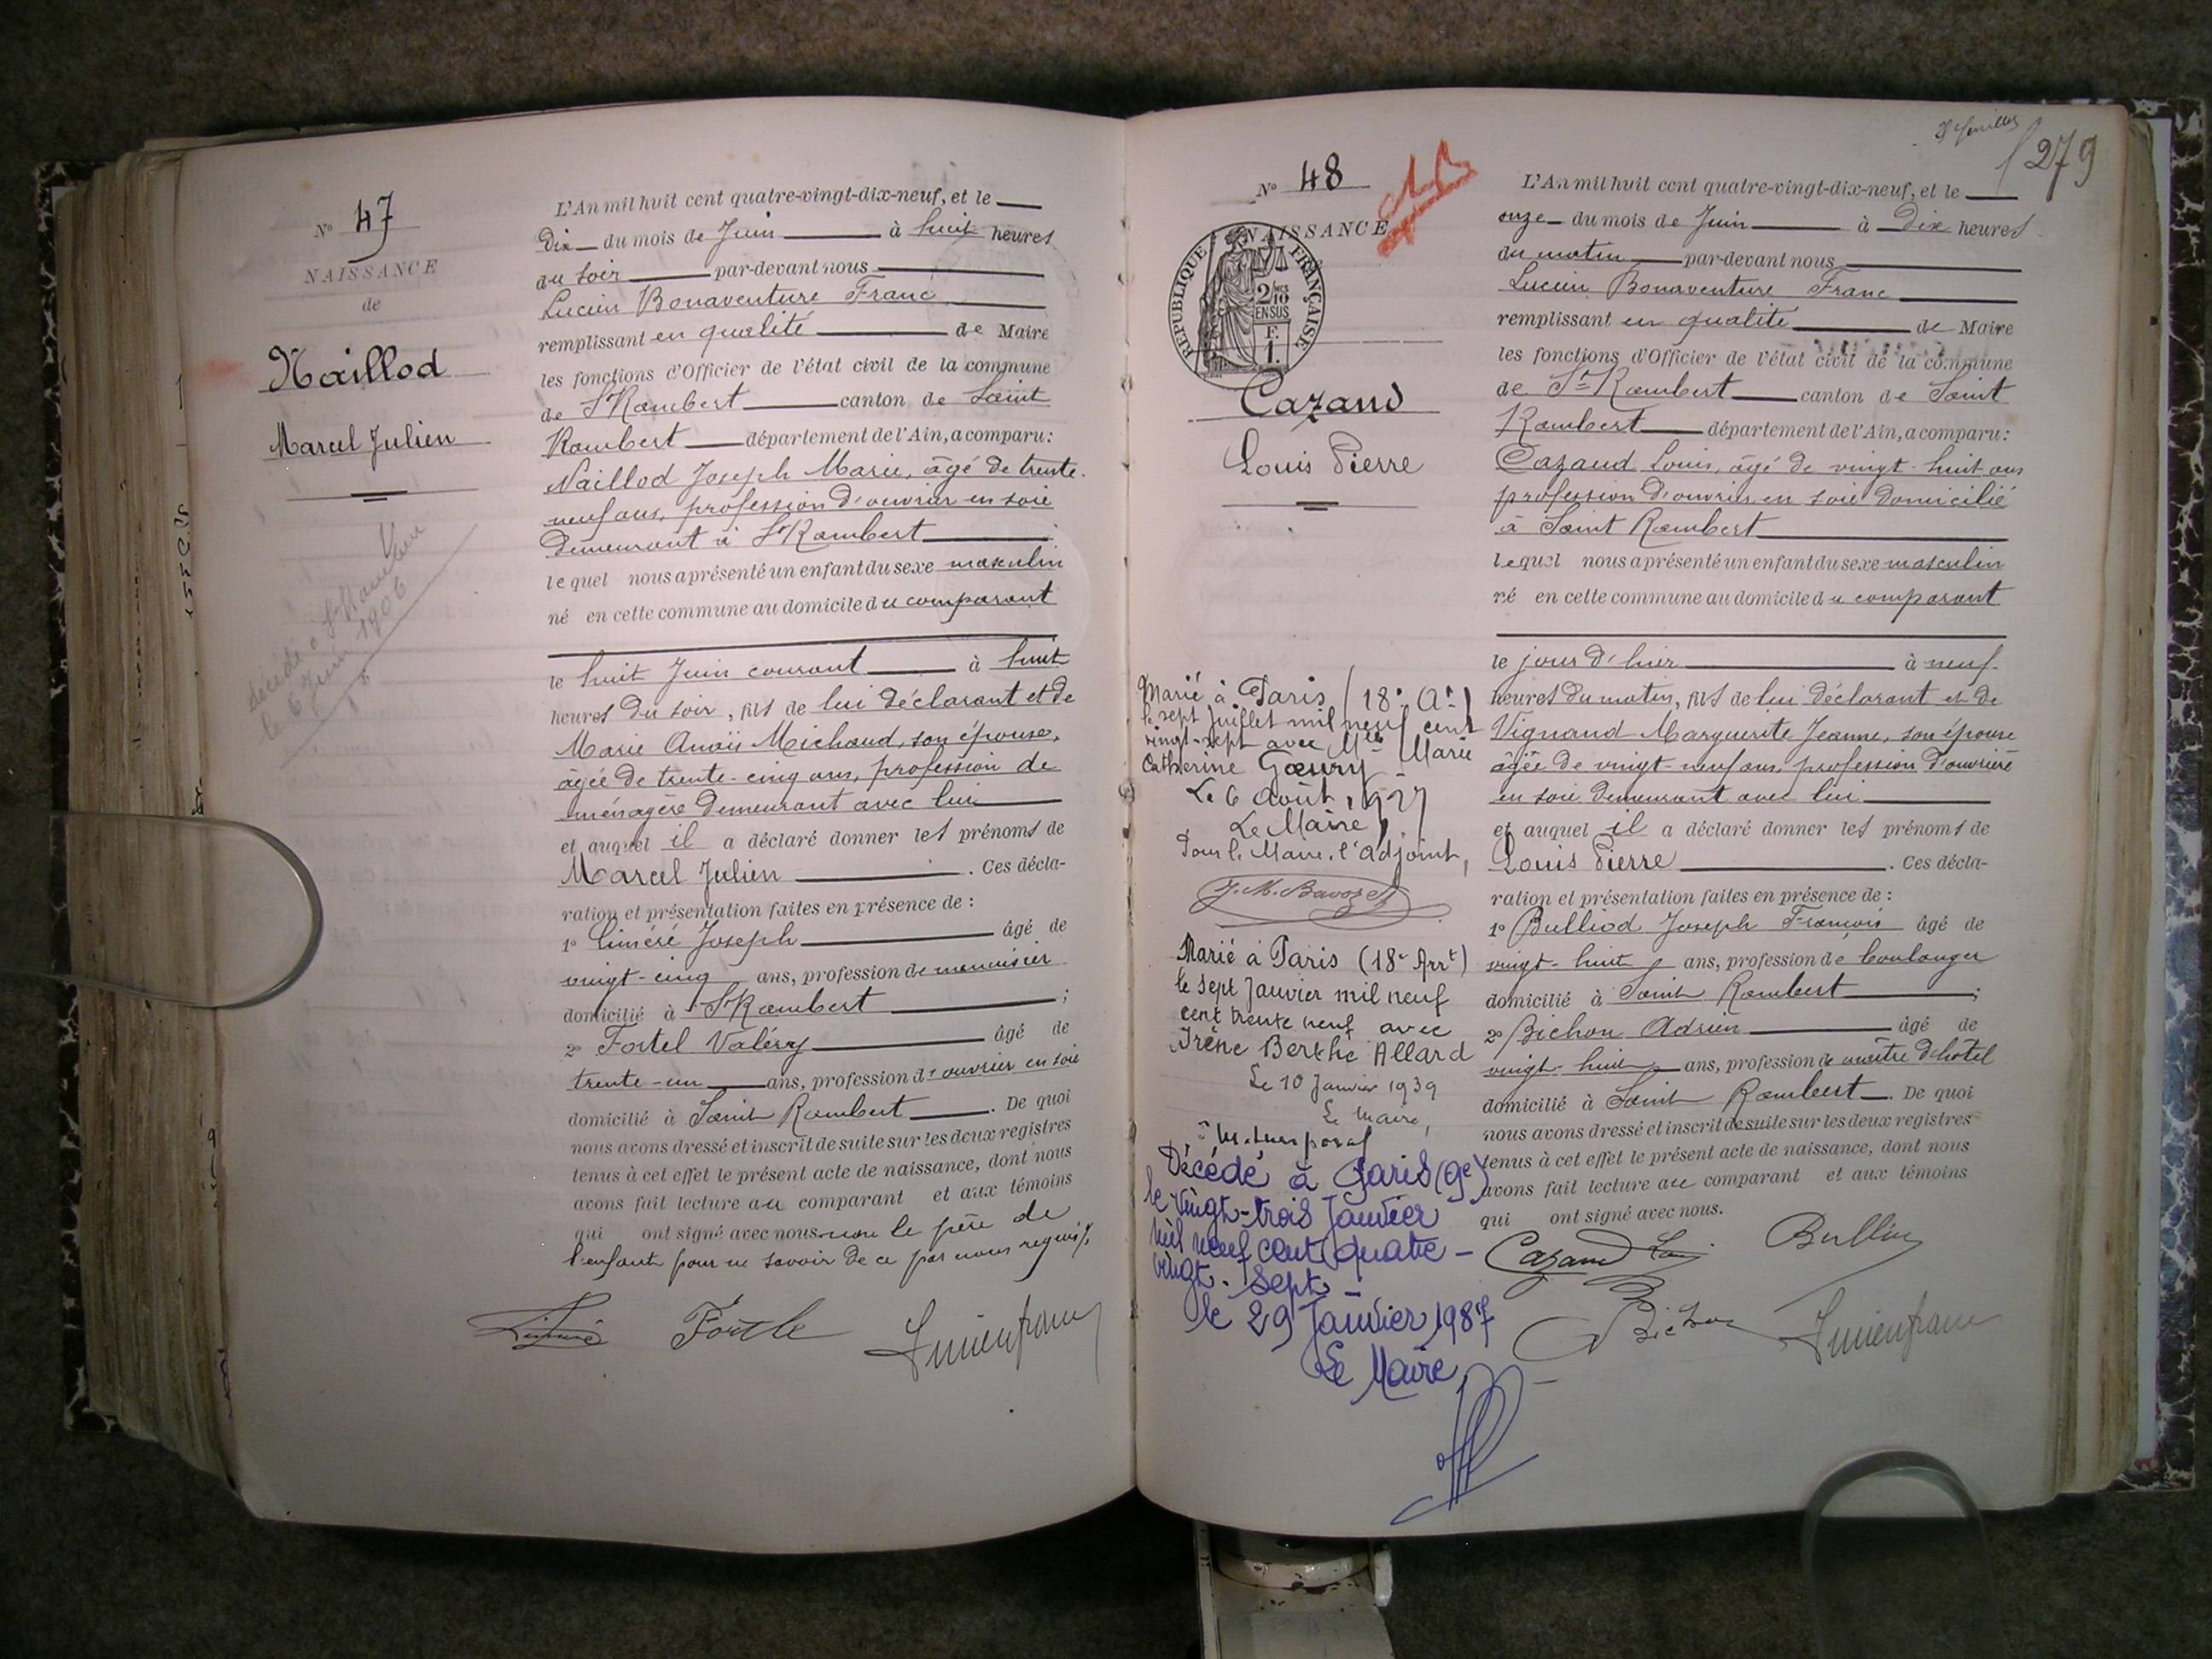 N° 47
NAISSANCE
de
Naillod
Marcel Julien
décédé à St Rambert
le 6 Juin 1906
L'An mil huit cent quatre-vingt-dix-neuf, et le
Dix du mois de Juin à huit heures
du soir par-devant nous
Lucien Bonaventure Franc
remplissant en qualité de Maire
les fonctions d'Officier de l'état civil de la commune
de St Rambert canton de Saint
Rambert département de l'Ain, a comparu:
Naillod Joseph Marie, âgé de trente-
neuf ans, profession d'ouvrier en soie
demeurant à St Rambert
lequel nous a présenté un enfant du sexe masculin
né en cette commune au domicile du comparant
le huit Juin courant à huit
heures du soir, fils de lui déclarant et de
Marie Anaïs Michaud, son épouse,
âgée de trente-cinq ans, profession de
ménagère demeurant avec lui
et auquel il a déclaré donner les prénoms de
Marcel Julien. Ces décla-
ration et présentation faites en présence de:
1° Liméré Joseph âgé de
vingt-cinq ans, profession de menuisier
domicilié à St Rambert;
2° Fortel Valéry âgé de
trente-un ans, profession d'ouvrier en soie
domicilié à Saint Rambert. De quoi
nous avons dressé et inscrit de suite sur les deux registres
tenus à cet effet le présent acte de naissance, dont nous
avons fait lecture au comparant et aux témoins
qui ont signé avec nous non le père de
l'enfant pour ne savoir de ce par nous requis.
Lucienfranc
279
N° 48
NAISSANCE
REPUBLIQUE FRANÇAISE
2/10
EN SUS
F.
1.
Cazaud
Louis Pierre
Marié à Paris (18e Ar)
le sept Juillet mil neuf cent
vingt-sept avec Mlle Marie
Catherine Goeury
Le 6 Août 1927
Le Maire,
Pour le Maire, l'adjoint,
J. M. Bavozet
Marié à Paris (18e Arrt)
le sept Janvier mil neuf
cent trente neuf avec
Irène Berthe Allard
Le 10 Janvier 1939
Le maire,
Décédé à Paris (9e)
le vingt-trois Janvier
mil neuf cent quatre-
vingt-sept
le 29 Janvier 1987
Le Maire
L'An mil huit cent quatre-vingt-dix-neuf, et le
onze du mois de Juin à Dix heures
du matin par-devant nous
Lucien Bonaventure Franc
remplissant en qualité de Maire
les fonctions d'Officier de l'état civil de la commune
de St Rambert canton de Saint
Rambert département de l'Ain, a comparu:
Cazaud Louis, âgé de vingt-huit ans
profession d'ouvrier en soie domicilié
à Saint Rambert
lequel nous a présenté un enfant du sexe masculin
né en cette commune au domicile du comparant
le jour d'hier à neuf
heures du matin, fils de lui déclarant et de
Vignand Marguerite Jeanne, son épouse
âgée de vingt-neuf ans, profession d'ouvrière
en soie demeurant avec lui
et auquel il a déclaré donner les prénoms de
Louis Pierre. Ces décla-
ration et présentation faites en présence de:
1° Bulliod Joseph François âgé de
vingt-huit ans, profession de boulanger
domicilié à Saint Rambert;
2° Bichon Adrien âgé de
vingt-huit ans, profession de maître d'hôtel
domicilié à Saint Rambert. De quoi
nous avons dressé et inscrit de suite sur les deux registres
tenus à cet effet le présent acte de naissance, dont nous
avons fait lecture au comparant et aux témoins
qui ont signé avec nous.
Cazaud Louis
Bichon Lucienfranc